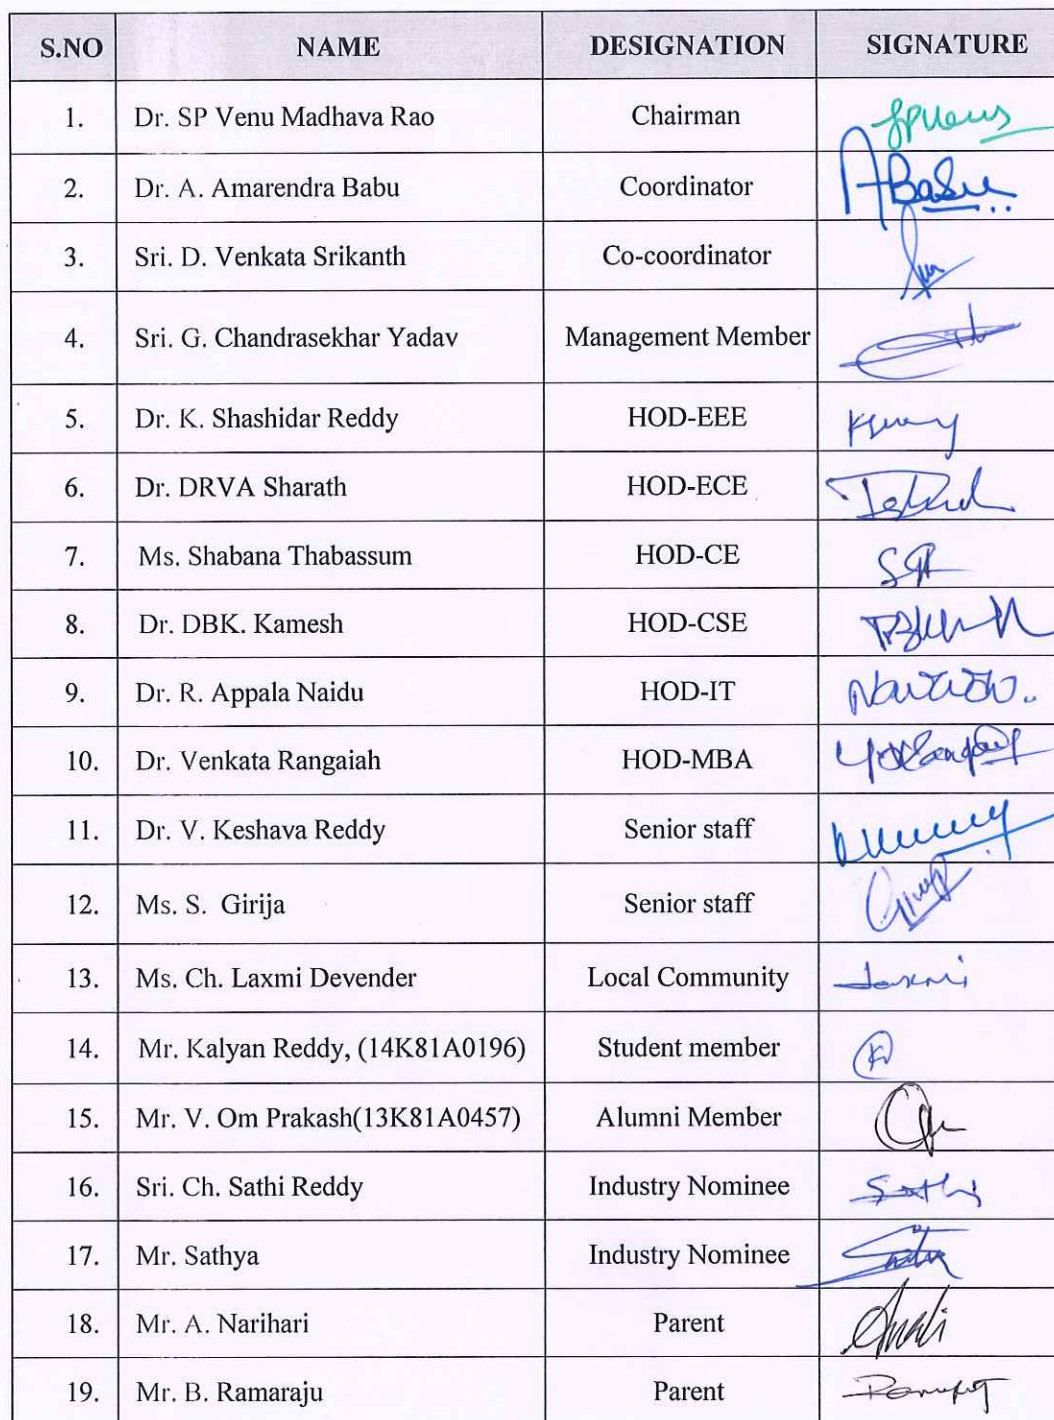 S.NO NAME DESIGNATION SIGNATURE
1. Dr. SP Venu Madhava Rao Chairman
2. Dr. A. Amarendra Babu Coordinator ABabu
3. Sri. D. Venkata Srikanth Co-coordinator
4. Sri. G. Chandrasekhar Yadav Management Member
5. Dr. K. Shashidar Reddy HOD-EEE
6. Dr. DRVA Sharath HOD-ECE
7. Ms. Shabana Thabassum HOD-CE
8. Dr. DBK. Kamesh HOD-CSE
9. Dr. R. Appala Naidu HOD-IT
10. Dr. Venkata Rangaiah HOD-MBA
11. Dr. V. Keshava Reddy Senior staff
12. Ms. S. Girija Senior staff
13. Ms. Ch. Laxmi Devender Local Community Laxmi
14. Mr. Kalyan Reddy, (14K81A0196) Student member
15. Mr. V. Om Prakash(13K81A0457) Alumni Member
16. Sri. Ch. Sathi Reddy Industry Nominee Sathi
17. Mr. Sathya Industry Nominee
18. Mr. A. Narihari Parent
19. Mr. B. Ramaraju Parent